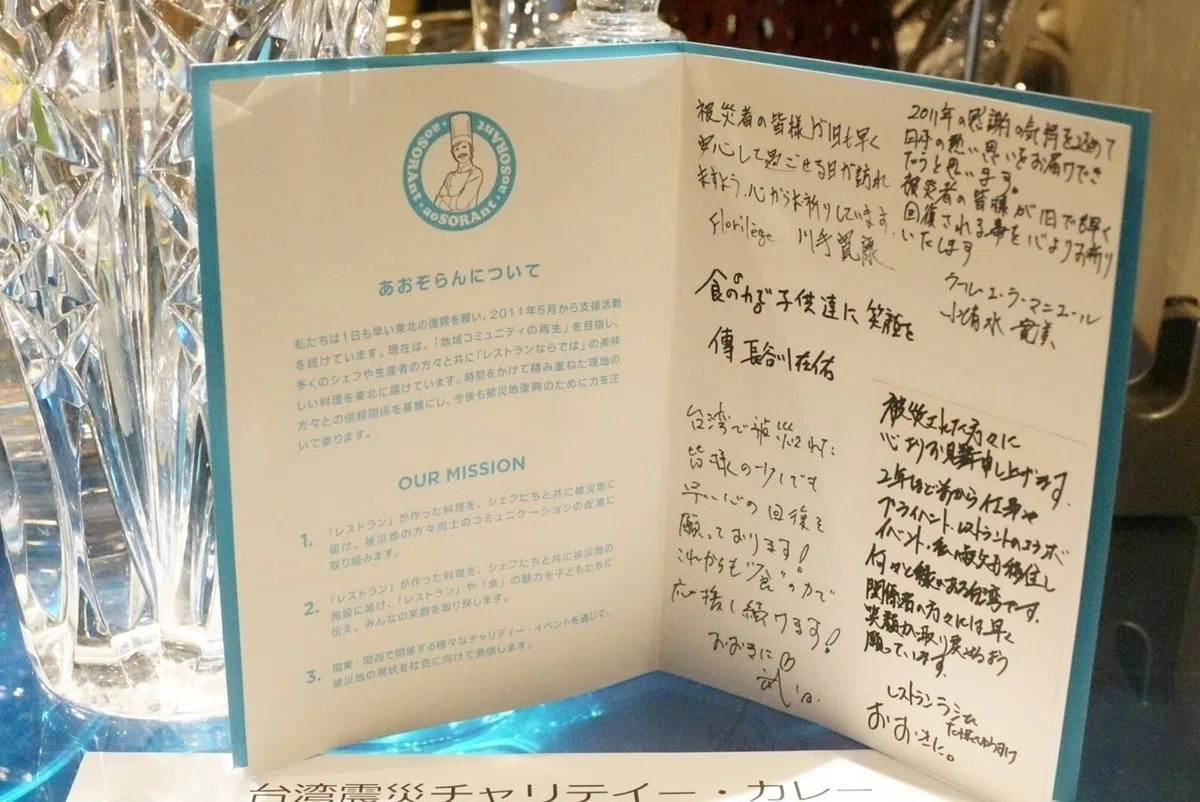 aoSORAnt・aoSORAnt・aoSORAnt・
あおぞらんについて
私たちは1日も早い東北の復興を願い、2011年5月から支援活動
を続けています。現在は、「地域コミュニティの再生」を目指し、
多くのシェフや生産者の方々と共に「レストランならでは」の美味
しい料理を東北に届けています。時間をかけて積み重ねた現地の
方々との信頼関係を基盤にし、今後も被災地復興のために力を注
いで参ります。
OUR MISSION
1. 「レストラン」が作った料理を、シェフたちと共に被災地に
届け、被災地の方々同士のコミュニケーションの促進に
取り組みます。
2. 「レストラン」が作った料理を、シェフたちと共に被災地の
施設に届け、「レストラン」や「食」の魅力を子どもたちに
伝え、みんなの笑顔を取り戻します。
3. 関東・関西で開催する様々なチャリティー・イベントを通じて、
被災地の現状を社会に向けて発信します。
被災者の皆様が1日も早く
安心して過ごせる日が訪れ
ますよう、心からお祈りしています。
florilege 川手寛康
2011年の感謝の気持を込めて
日本の熱い思いをお届けでき
たらと思います。
被災者の皆様が1日でも早く
回復される事を心よりお祈り
いたします
ラール・エ・ラ・マニエール
小清水
食の力で子供達に笑顔を
傳 長谷川在佑
台湾で被災された
皆様の少しでも
早い心の回復を
願っております!
これからも"食"の力で
応援し続けます!
おおきに
被災された方々に
心よりお見舞申し上げます。
2年ほど前から仕事や
プライベント・レストラントのコラボ
イベント・私の も移住し
何かと縁がある台湾です。
関係者の方々には早く
笑顔が取り戻せるよう
願っています。
レストランラシム
おおきに。
台湾震災チャリティー・カレー